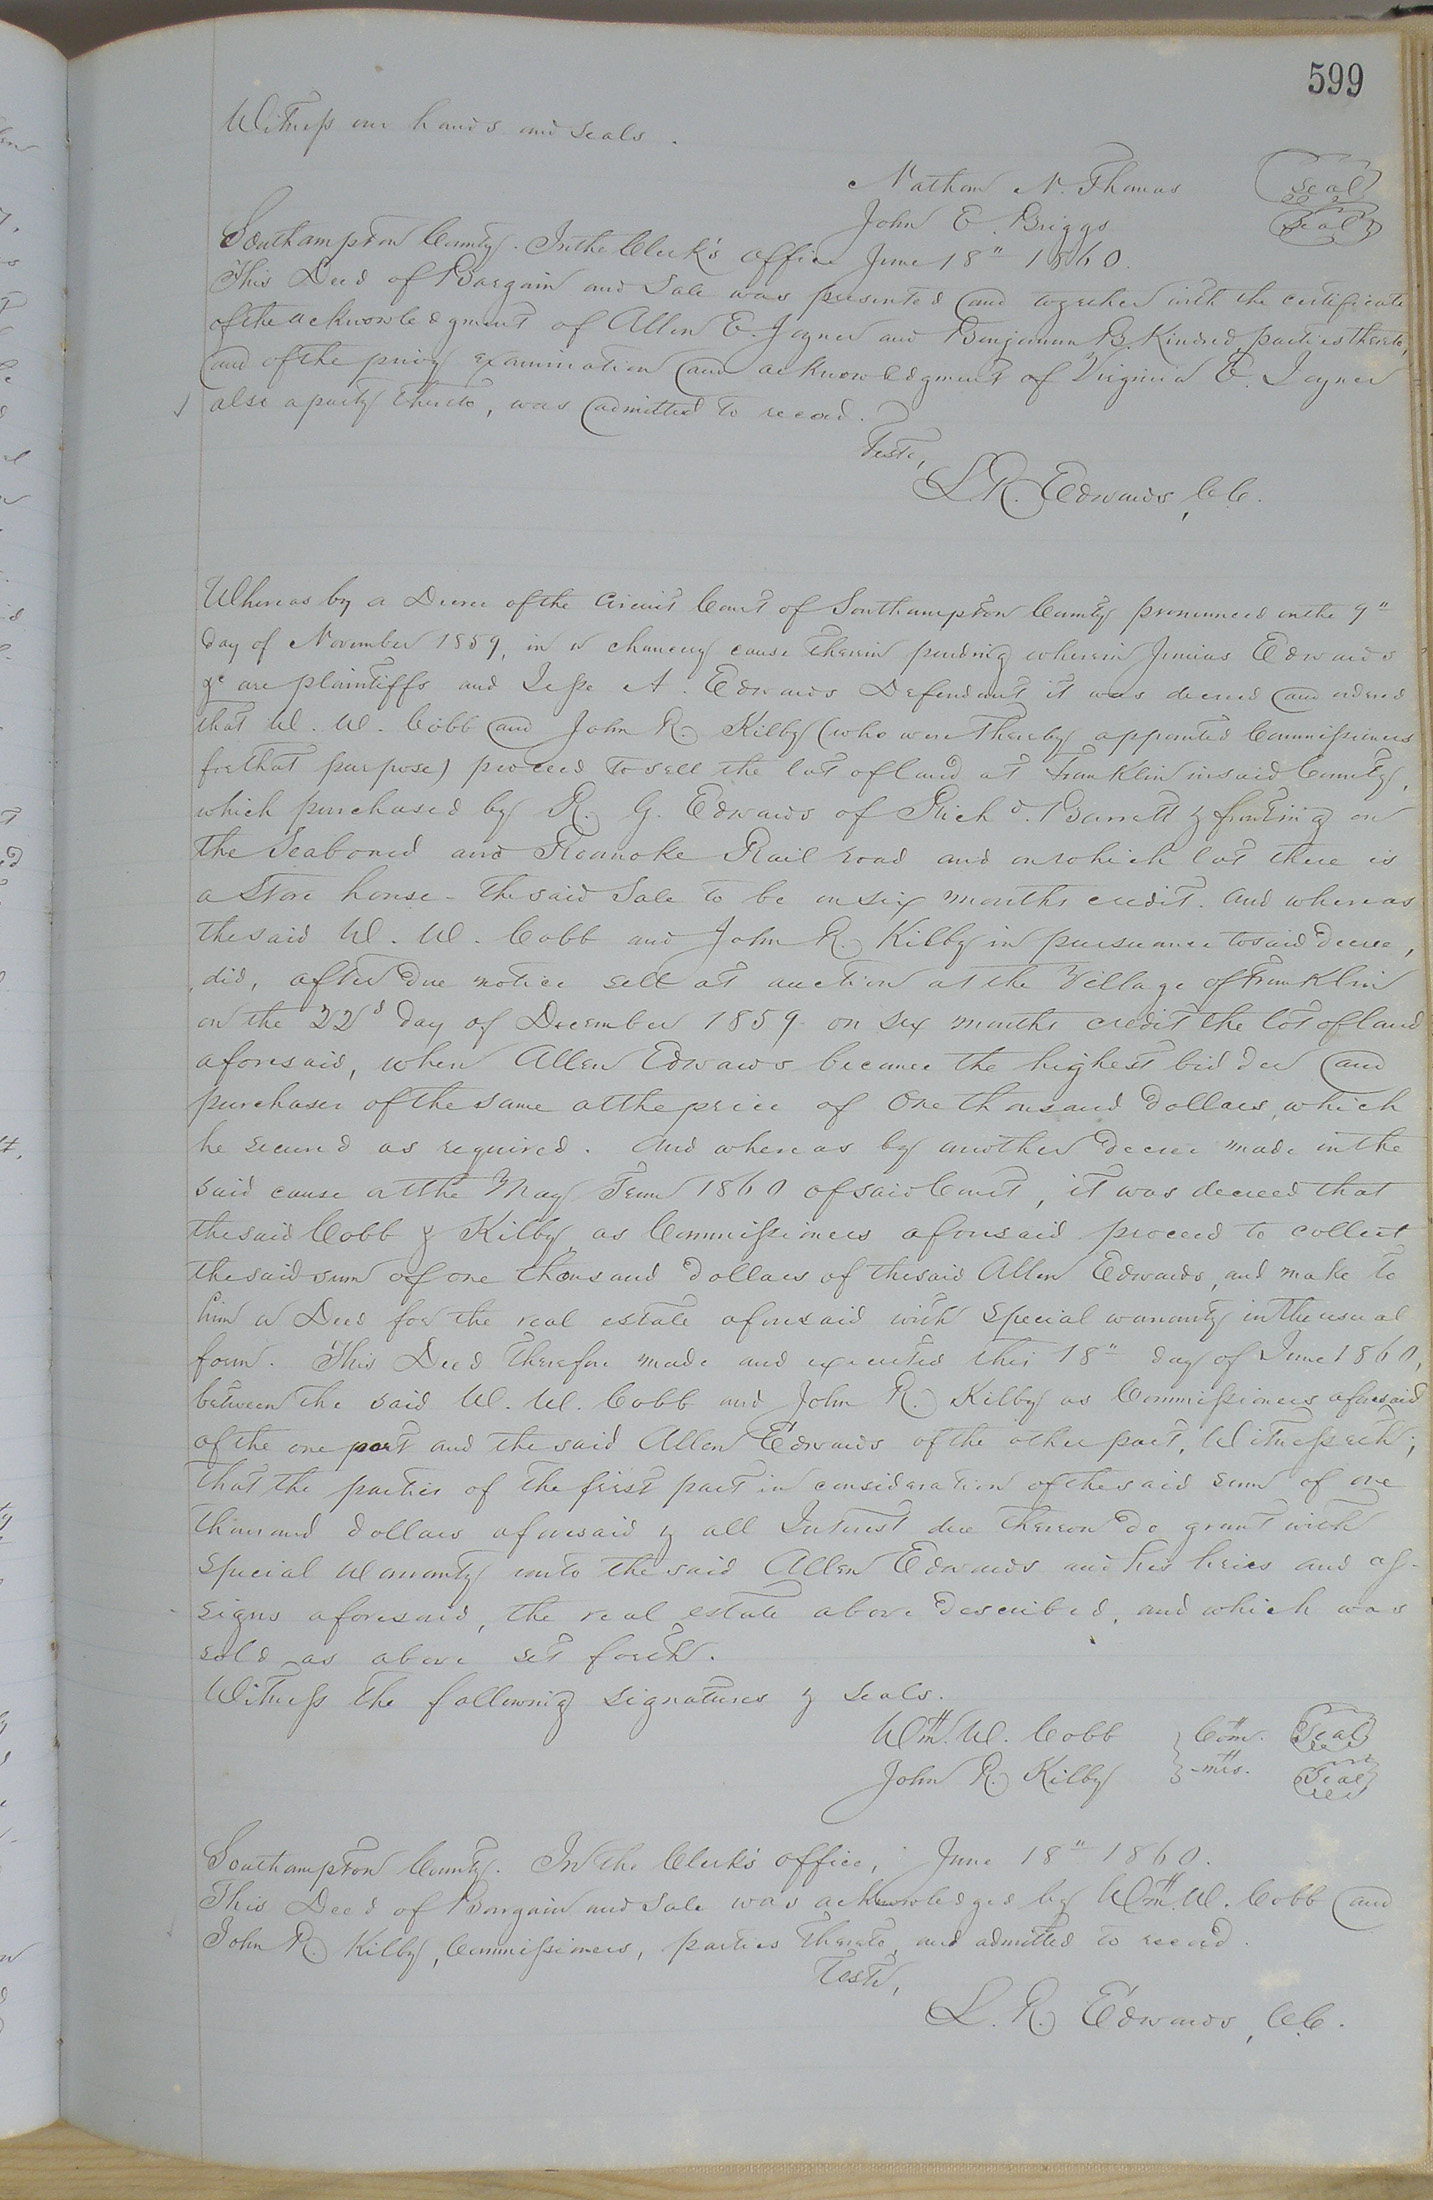 599
Witness our hands and seals.
Nathan N. Thomas (Seal)
John E. Briggs (Seal)
Southampton County. In the Clerk's office June 18" 1860.
This Deed of Bargain and Sale was presented and together with the certificate
of the acknowledgment of Allen E. Joyner and Benjamin B. Kindred, parties thereto,
and of the privy examination and acknowledgment of Virginia E. Joyner
also a party thereto, was admitted to record.
Teste,
L. R. Edwards, C.C.
Whereas by a Decree of the Circuit Court of Southampton County pronounced on the 9"
day of November 1859, in a chancery cause therein pending wherein Junius Edwards
&c are plaintiffs and Jesse A. Edwards Defendant it was decreed and ordered
that W. W. Cobb and John R. Kilby (who were thereby appointed Commissioners
for that purpose) proceed to sell the lot of land at Franklin in said County,
which purchased by R. G. Edwards of Richd. Barrett & fronting on
the Seaboard and Roanoke Rail road and on which lot there is
a Store house - the said Sale to be on six months credit. And whereas
the said W. W. Cobb and John R. Kilby in pursuance to said Decree,
did, after due notice sell at auction at the Village of Franklin
on the 22d day of December 1859 on six months credit the lot of land
aforesaid, when Allen Edwards became the highest bidder and
purchaser of the same at the price of One thousand Dollars, which
he secured as required. And whereas by another Decree made in the
said cause at the May Term 1860 of said Court, it was decreed that
the said Cobb & Kilby as Commissioners aforesaid proceed to collect
the said sum of one thousand Dollars of the said Allen Edwards, and make to
him a Deed for the real estate aforesaid with Special warranty in the usual
form. This Deed therefore made and executed this 18" day of June 1860,
between the said W. W. Cobb and John R. Kilby as Commissioners aforesaid
of the one part and the said Allen Edwards of the other part, Witnesseth;
that the parties of the first part in consideration of the said sum of one
thousand dollars aforesaid & all Interest due thereon do grant with
special Warranty unto the said Allen Edwards and his heirs and as-
signs aforesaid, the real estate above described, and which was
sold as above set forth.
Witness the following signatures & seals.
Wm. W. Cobb } Com. (Seal)
John R. Kilby } -mrs. (Seal)
Southampton County. In the Clerk's office, June 18" 1860.
This Deed of Bargain and Sale was acknowledged by Wm. W. Cobb and
John R. Kilby, Commissioners, parties thereto, and admitted to record.
Teste,
L. R. Edwards, C.C.